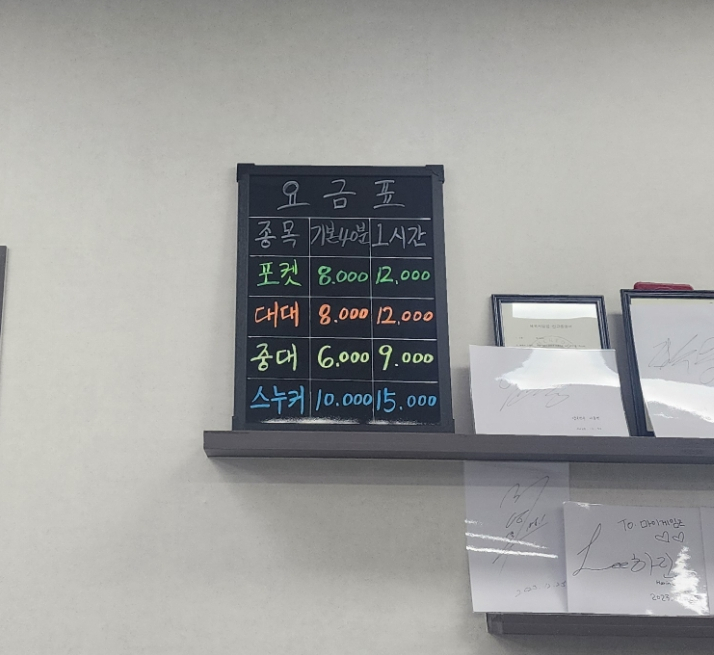 요금표
종목 기본40분 1시간
포켓 8.000 12.000
대대 8.000 12.000
중대 6.000 9.000
스누커 10.000 15.000
TO 마이게임즈